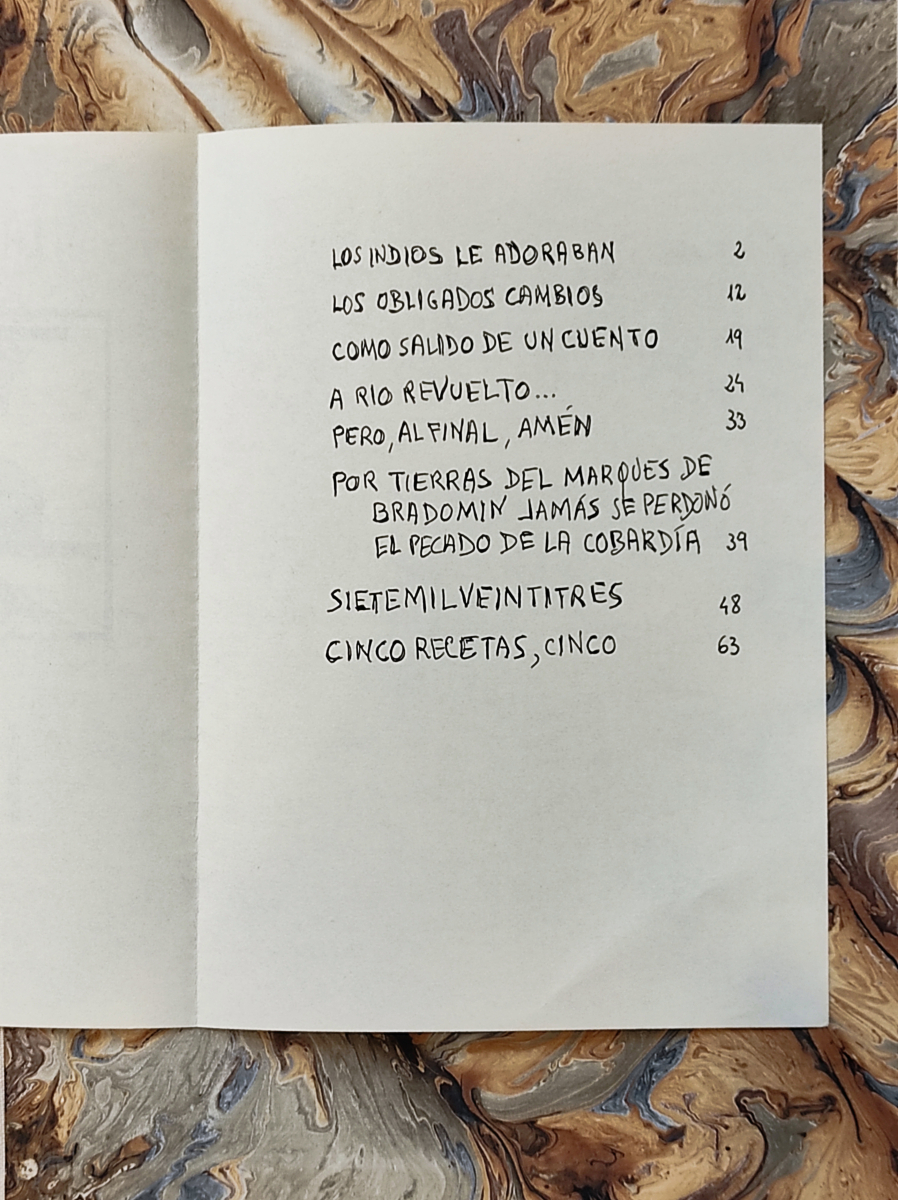 LOS INDIOS LE ADORABAN 2
LOS OBLIGADOS CAMBIOS 12
COMO SALIDO DE UN CUENTO 19
A RIO REVUELTO... 24
PERO, AL FINAL, AMÉN 33
POR TIERRAS DEL MARQUES DE
BRADOMIN JAMÁS SE PERDONÓ
EL PECADO DE LA COBARDÍA 39
SIETEMILVEINTITRES 48
CINCO RECETAS, CINCO 63